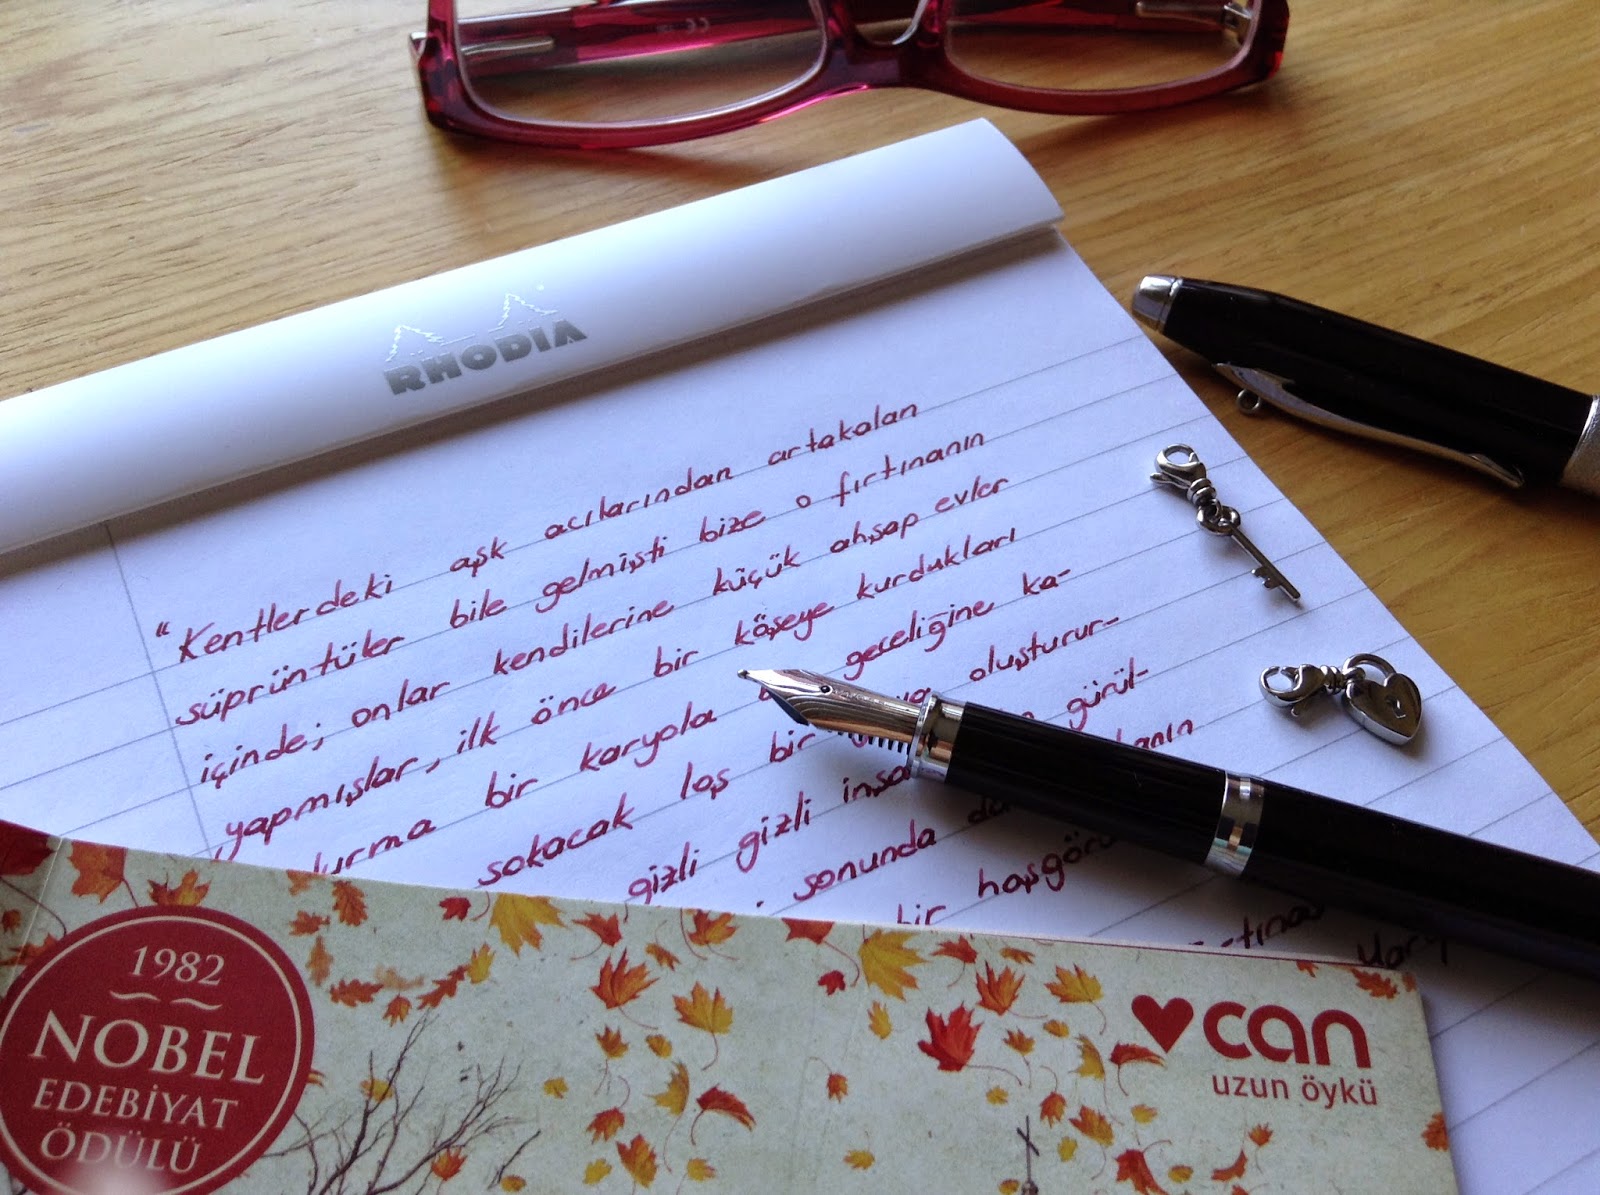 RHODIA
“Kentlerdeki aşk acılarından artakalan
süprüntüler bile gelmişti bize o fırtınanın
içinde; onlar kendilerine küçük ahşap evler
yapmışlar, ilk önce bir köşeye kurdukları
bir karyola geceliğine ka-
sokacak loş bir oluşturur-
gizli gizli gürül-
sonunda
bir
1982
NOBEL
EDEBİYAT
ÖDÜLÜ
can
uzun öykü